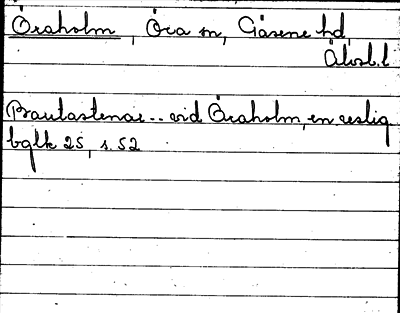 Öraholm, Öra sn, Gäsene hd,
Älvsb. l
Bautastenar.. vid Öraholm, en reslig
bglk 25, s. 52